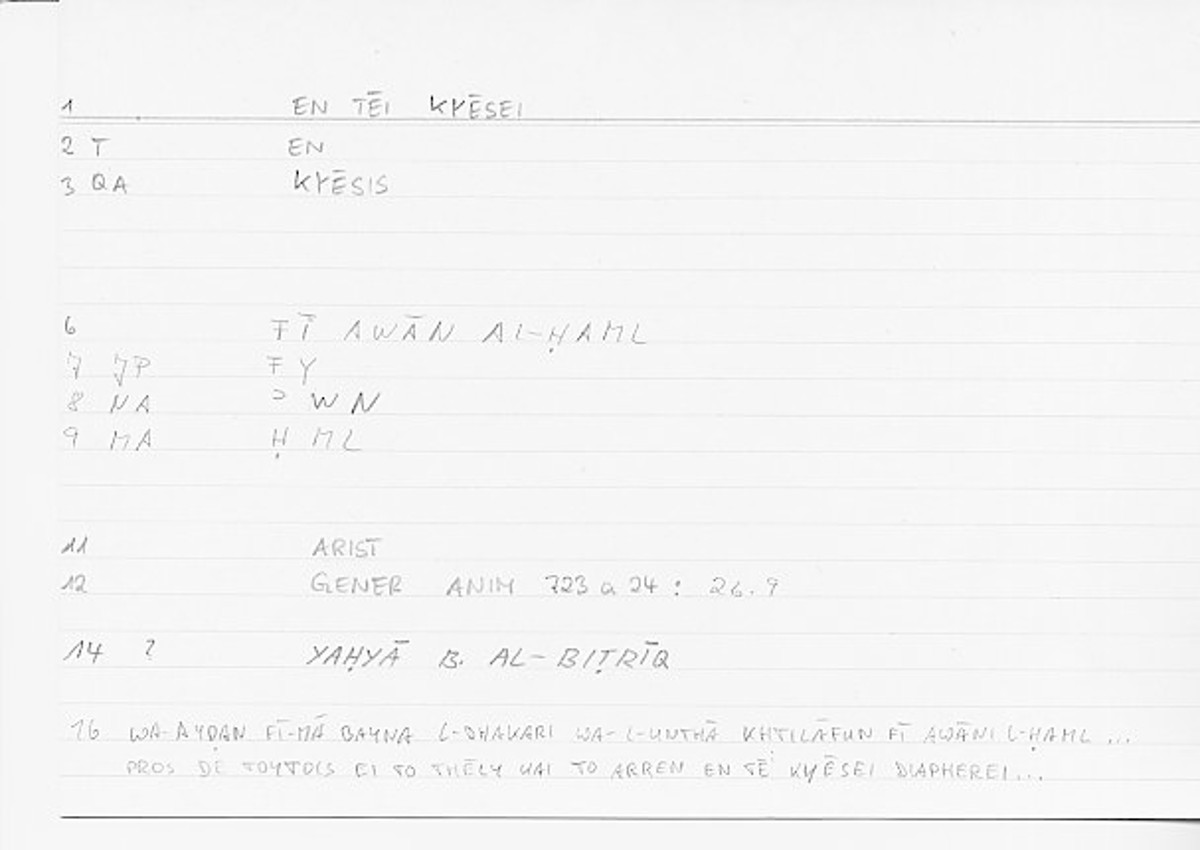 1 EN TĒI KYĒSEI
2 T EN
3 QA KYĒSIS
6 FĪ AWĀN AL-ḤAML
7 JP FY
8 NA ʾWN
9 MA ḤML
11 ARIST
12 GENER ANIM 723 a 24 : 26.9
14 ? YAḤYĀ B. AL-BIṬRĪQ
16 WA-AYḌAN FĪ-MĀ BAYNA L-DHAKARI WA-L-UNTHĀ KHTILĀFUN FĪ AWĀNI L-ḤAML ...
PROS DE TOYTOIS EI TO THĒLY KAI TO ARREN EN TĒ KYĒSEI DIAPHEREI ...